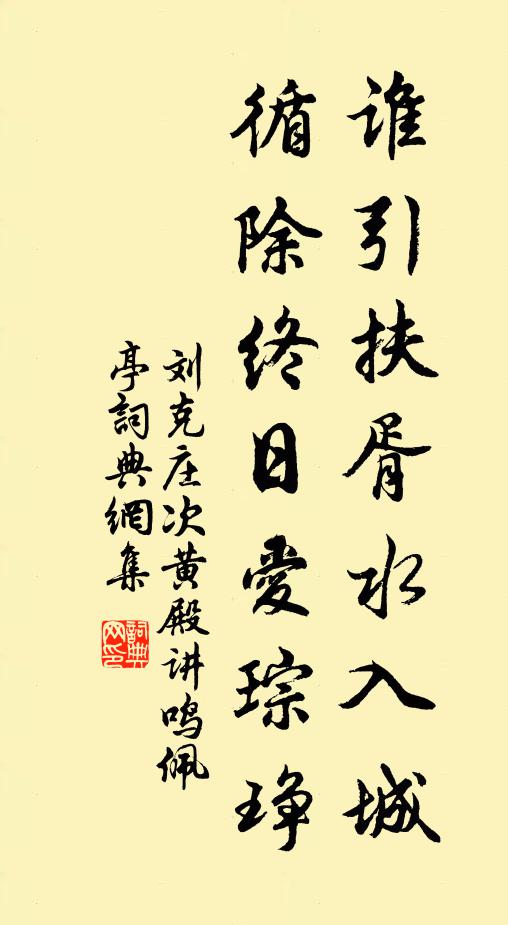 谁引扶胥水入城
循除终日爱琮琤
刘克庄次黄殿讲鸣佩
亭詞典網集
詞典网印